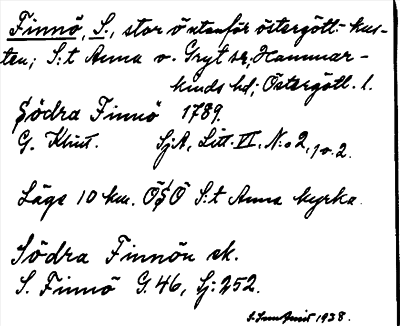 Finnö, S., stor ö utanför östergötl.-kus-
ten; S:t Anna o. Gryt sr, Hammar-
kinds hd; Östergötl. l.
Södra Finnö 1789.
G. Klint. Sj.A, Litt. VI, N:o 2, 1 o. 2.
Läge 10 km. ÖSÖ S:t Anna kyrka.
Södra Finnön ek.
S. Finnö G. 46, Sj: 252.
1938.